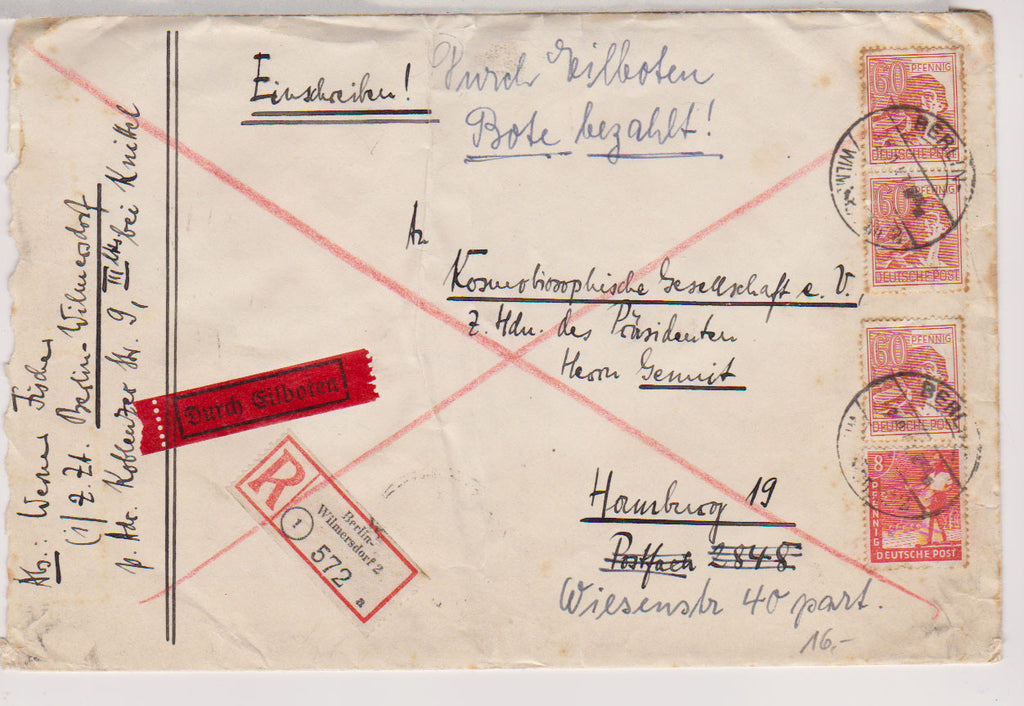 Einschreiben!
Durch Eilboten
Bote bezahlt!
An
Kosmobiosophische Gesellschaft e. V.,
z. Hdn. des Präsidenten
Herrn
Hamburg 19
Postfach 2848
Wiesenstr 40 part.
16.-
Abs.: Werner Fischer
(1) z. Zt. Berlin-Wilmersdorf
p. Adr. Koblenzer Str. 9, III bei Knittel
Durch Eilboten
R
1
Berlin-
Wilmersdorf 2
572
a
60 PFENNIG
DEUTSCHE POST
60 PFENNIG
DEUTSCHE POST
60 PFENNIG
DEUTSCHE POST
8 PFENNIG
DEUTSCHE POST
BERLIN
WILM
BERLIN